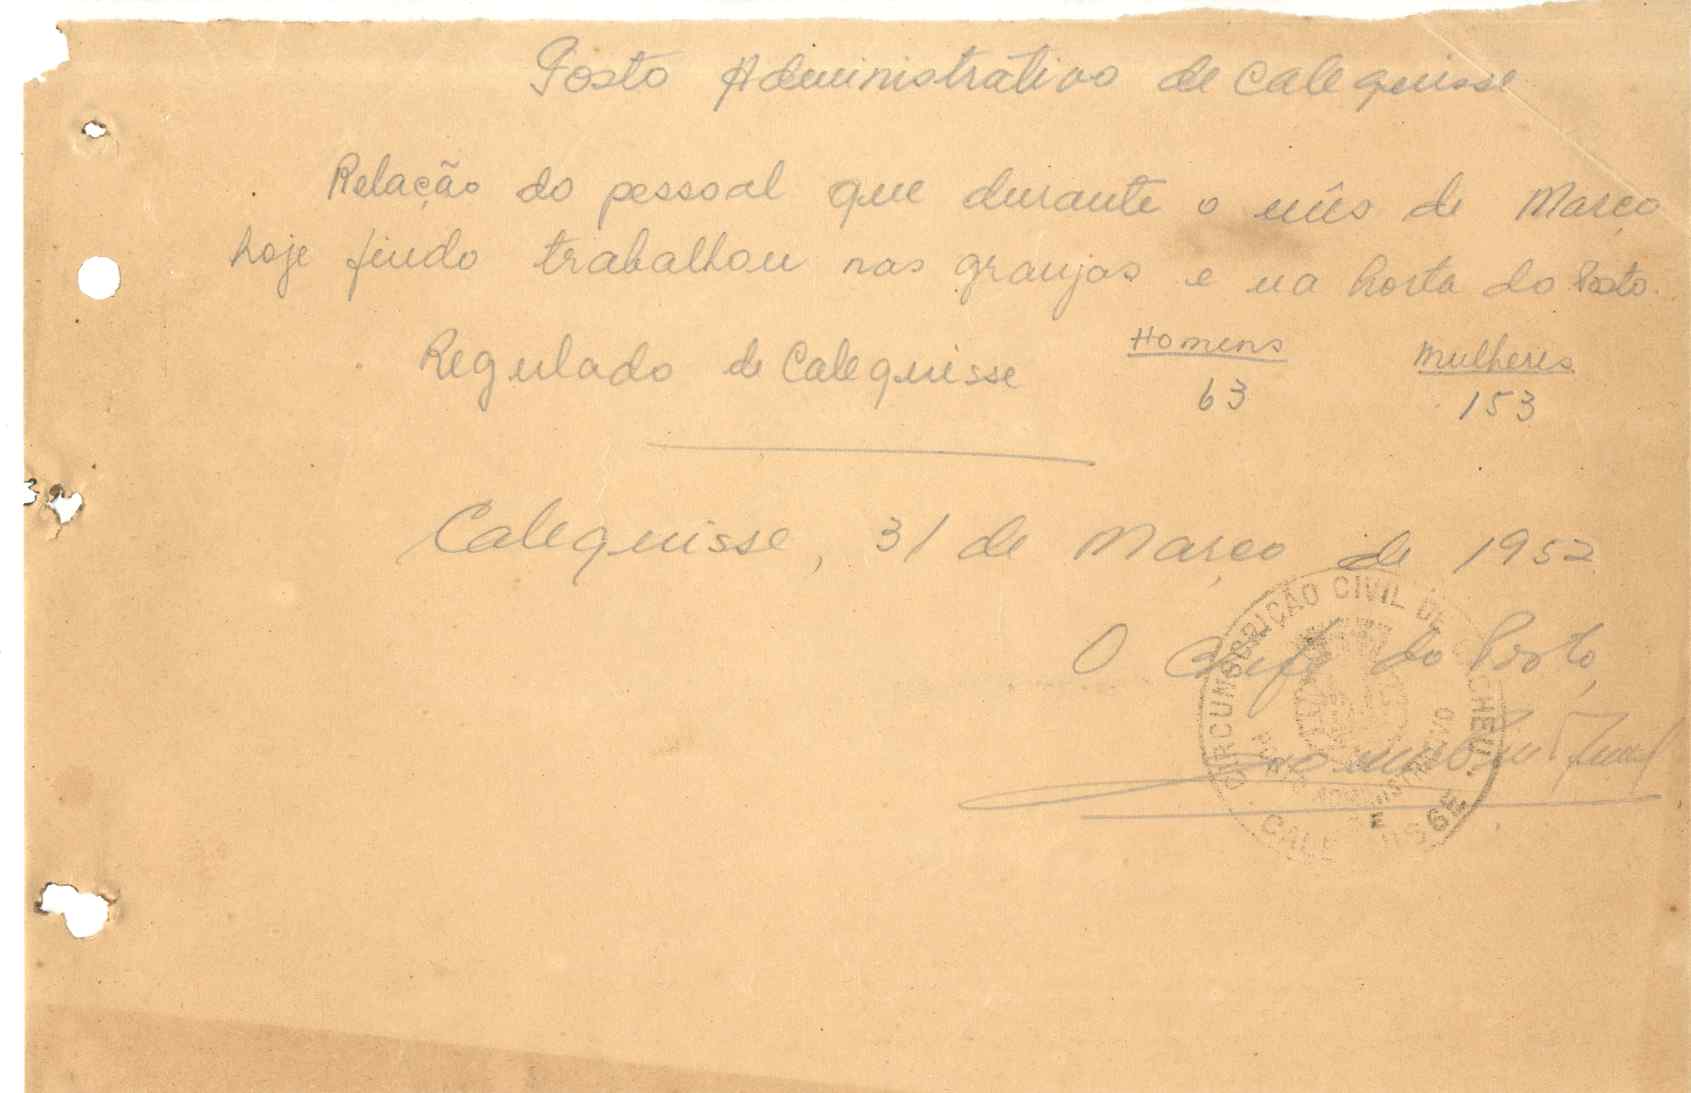 Posto Administrativo de Calequisse
Relação do pessoal que durante o mês de Março
hoje findo trabalhou nas granjas e na horta do Posto.
Homens Mulheres
Regulado de Calequisse 63 153
Calequisse, 31 de Março de 1952
O Chefe do Posto,
CIRCUNSCRIÇÃO CIVIL DE CACHEU
POSTO ADMINISTRATIVO
DE
CALEQUISSE